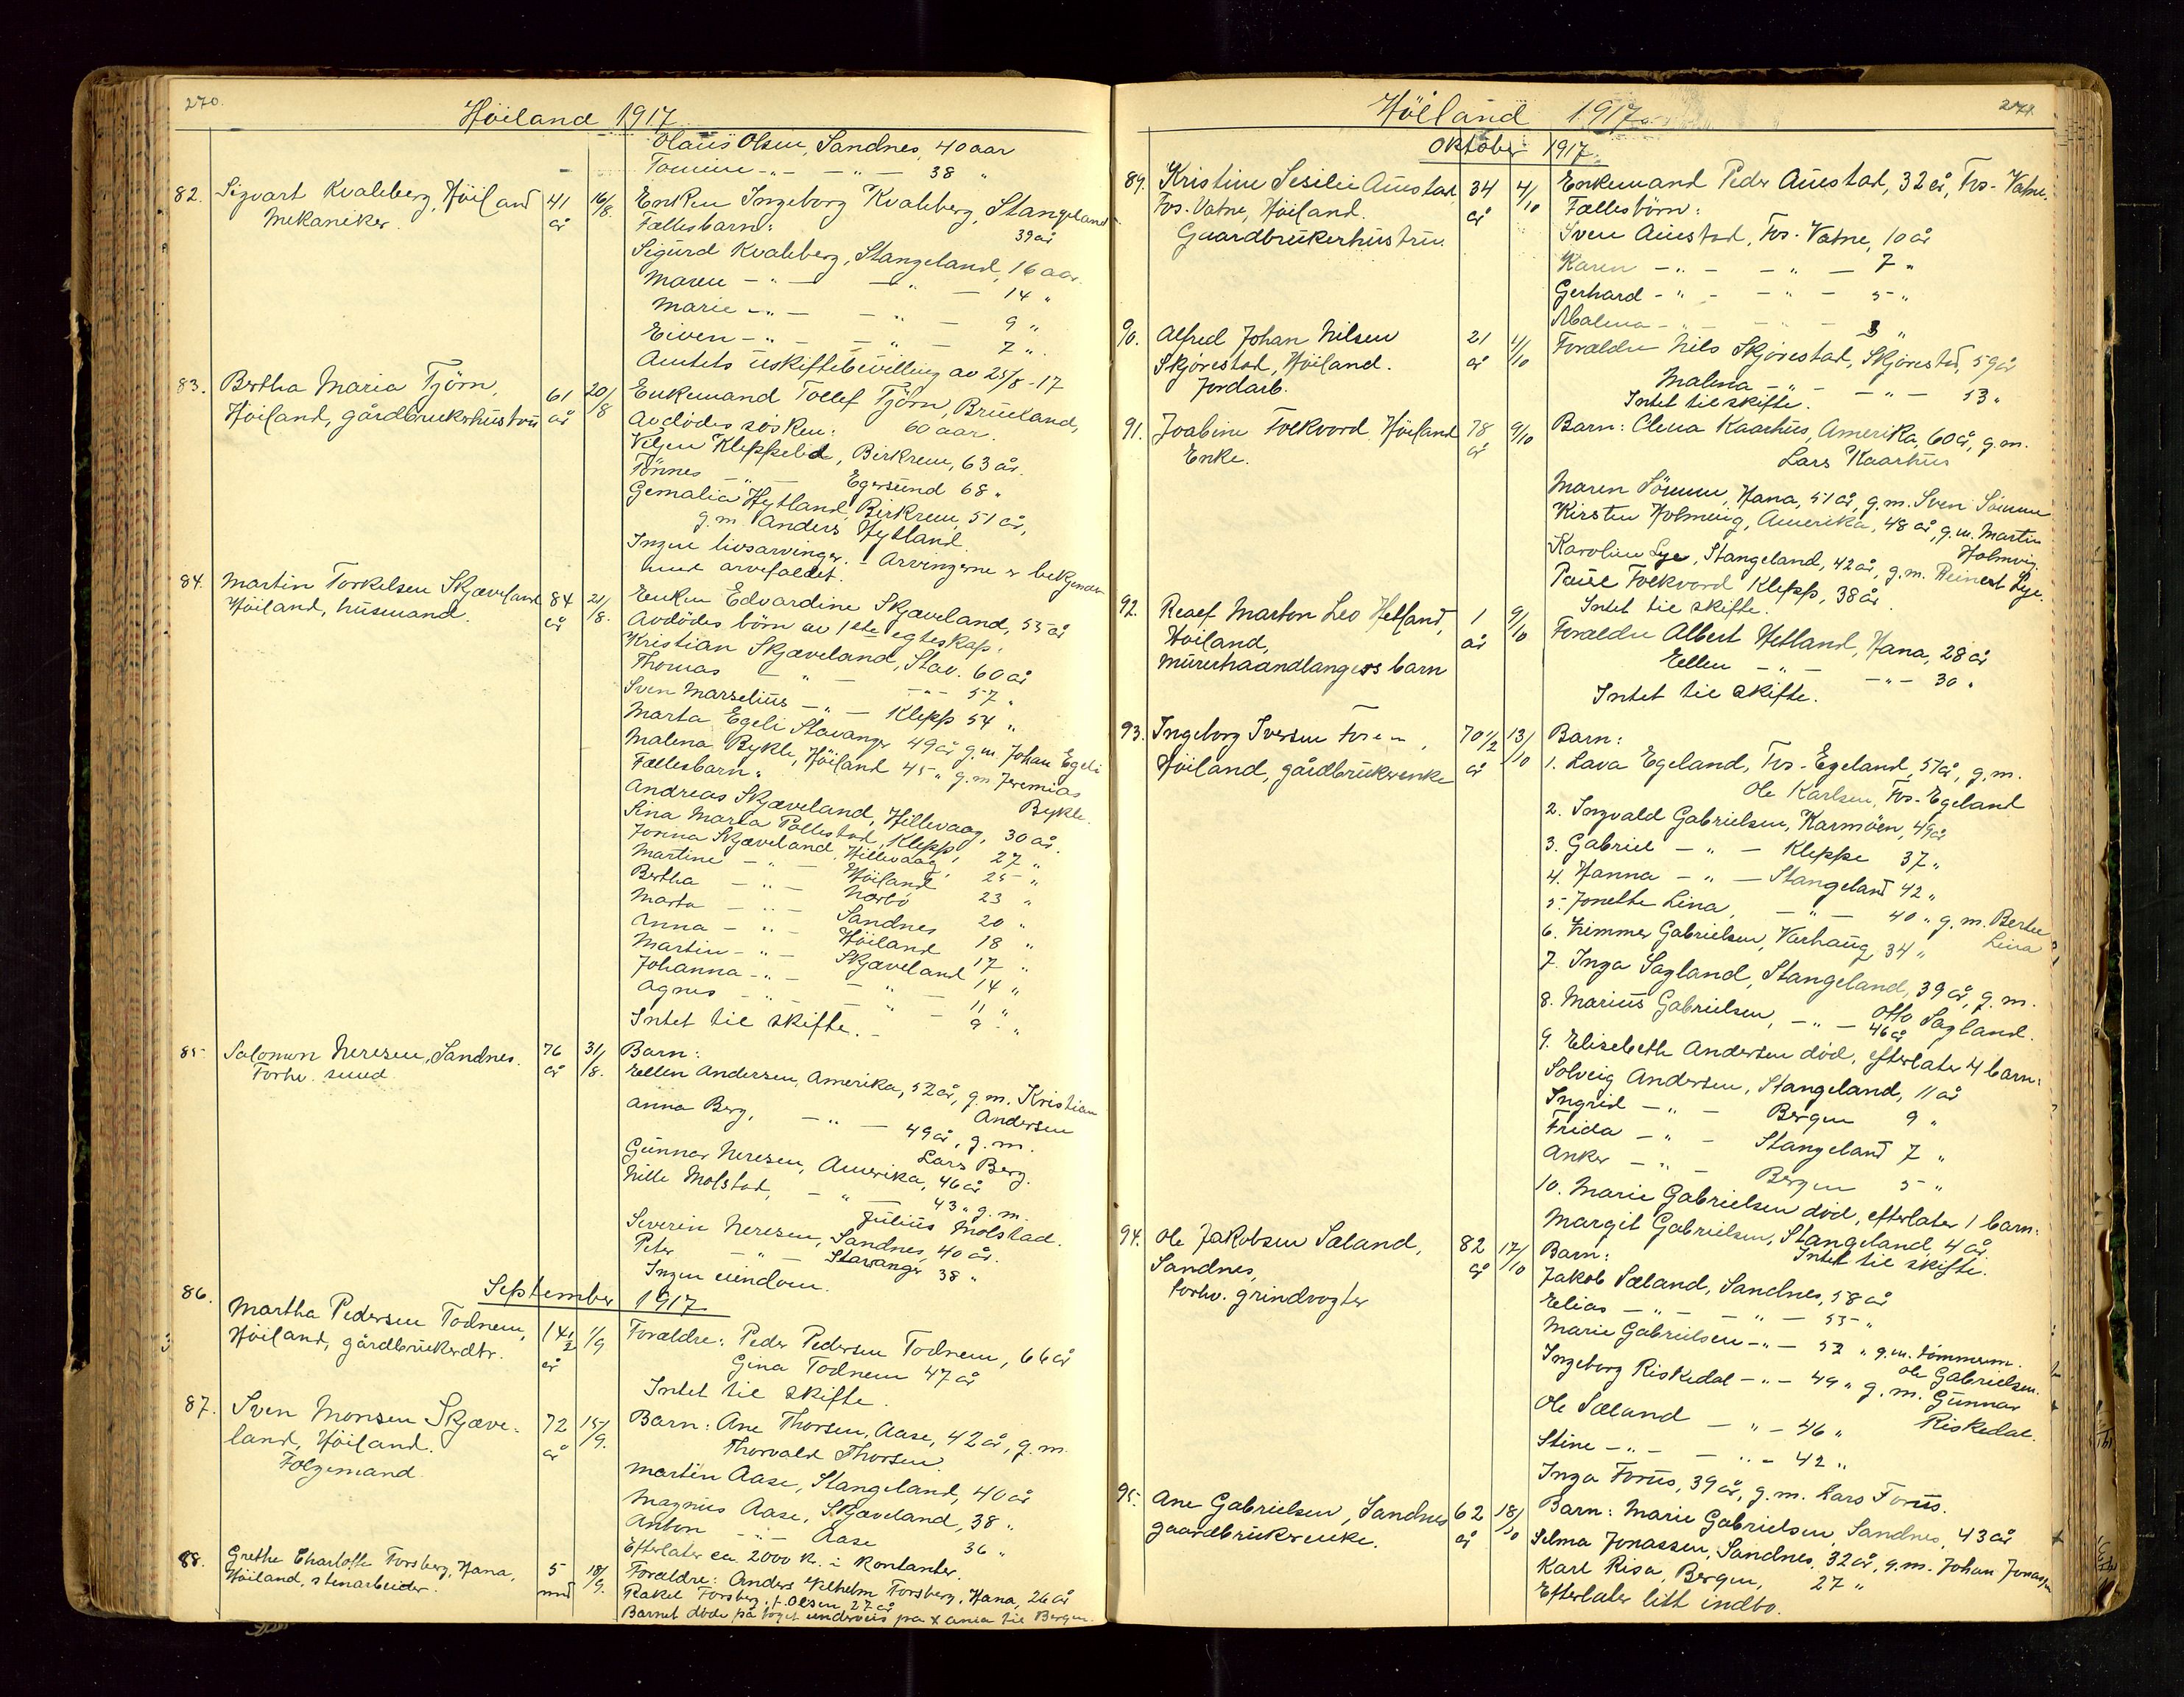 270.
Höiland 1917
Olaus Olsen, Sandnes, 40 aar
Tomine -"- -"- 38 "
82. Sigvart Kvaleberg, Höiland 41 år 16/8. Enken Ingeborg Kvaleberg, Stangeland
Mekaniker. Fællesbarn: 39 år
Sigurd Kvaleberg, Stangeland, 16 aar.
Maren -"- -"- 14 "
Marie -"- -"- 9 "
Eiven -"- -"- 7 ".
Amtets uskiftebevilling av 25/8-17
83. Bertha Maria Tjörn, 61 år 20/8 Enkemand Tollef Tjörn, Brueland,
Höiland, gårdbrukerhustru 60 aar.
Avdödes søsken:
Velgen Kleppelid, Birkrem, 63 år.
Tönnes -"- Egersund 68 "
Gemalia Hytland, Birkrem, 51 år,
g.m. Anders Hytland.
Ingen livsarvinger. - Arvingerne er bekjendt
med arvefaldet.
84. Martin Torkelsen Skjæveland 84 år 21/8. Enken Edvardine Skjæveland, 55 år
Höiland, husmand. Avdödes börn av 1ste egteskap:
Kristian Skjæveland, Stav. 60 år
Thomas -"- -"- 57 "
Sven Marselius -"- Klepp 54 "
Marta Egeli Stavanger 49 år g.m. Johan Egeli
Malena Bykle, Höiland 45 " g.m. Jeremias
Bykle.
Fællesbarn:
Andreas Skjæveland, Hillevaag, 30 år.
Sina Marta Pollestad, Klepp, 27 "
Jonna Skjæveland, Hillevaag, 25 "
Martine -"- Höiland 23 "
Bertha -"- Nærbö 20 "
Marta -"- Sandnes 18 "
Anna -"- Höiland 17 "
Martin -"- Skjæveland 14 "
Johanna -"- -"- 11 "
Agnes -"- -"- 9 "
Intet til skifte. -
85 Salomon Neresen, Sandnes. 76 år 31/8. Barn:
Forhv. smed Ellen Andersen, Amerika, 52 år, g.m. Kristian
Andersen
Anna Berg, -"- 49 år, g.m.
Lars Berg.
Gunnar Neresen, Amerika, 46 år
Nille Molstad, -"- 43 " g.m.
Julius Molstad.
Severin Neresen, Sandnes, 40 år.
Peter -"- Stavanger 38 "
Ingen eiendom.
September 1917
86. Martha Pedersen Todnem, 14 1/2 år 1/9 Forældre: Peder Pedersen Todnem, 66 år
Höiland, gårdbrukerdtr. Gina Todnem 47 år
Intet til skifte.
87. Sven Monsen Skjæve- 72 år 15/9. Barn: Ane Thorsen, Aase, 42 år, g.m.
land, Höiland. Thorvald Thorsen.
Folgemand Martin Aase, Stangeland, 40 år
Magnus Aase, Skjæveland, 38 "
Anton -"- Aase 36 "
Efterlater ca. 2000 kr. i kontanter.
88. Grethe Charlotte Forsberg, Hana, 5 mnd 18/9. Forældre: Anders Vilhelm Forsberg, Hana, 26 år
Höiland, stenarbeider. Rakel Forsberg, f. Olsen 27 år
Barnet döde på toget underveis fra Xania til Bergen.
271
Höiland 1917
Oktober 1917
89. Kristine Sesilie Auestad 34 år 4/10 Enkemand Peder Auestad, 32 år, Fos-Vatne.
Fos-Vatne, Höiland. Fællesbörn:
Gaardbrukerhustru Sven Auestad, Fos-Vatne, 10 år
Karen -"- -"- 7 "
Gerhard -"- -"- 5 "
Malena -"- -"- 3 "
90. Alfred Johan Nilsen 21 år 4/10 Forældre Nils Skjörestad, Skjörestad, 59 år
Skjörestad, Höiland. Malena -"- -"- 53 "
Jordarb. Intet til skifte.
91. Joabine Folkvord Höiland 78 år 9/10 Barn: Elena Kaarhus, Amerika, 60 år, g.m.
Enke. Lars Kaarhus
Maren Sömme, Hana, 51 år, g.m. Sven Sömme
Kirsten Holmvig, Amerika, 48 år, g.m. Martin
Holmvig.
Karoline Lye, Stangeland, 42 år, g.m. Reinert Lye.
Paul Folkvord Klepp, 38 år.
Intet til skifte.
92. Realf Marton Leo Hetland, 1 år 9/10 Forældre Albert Hetland, Hana, 28 år
Höiland, Ellen -"- -"- 30 "
Murerhaandlangers barn Intet til skifte.
93. Ingeborg Iversen Foren, 70 1/2 år 13/10 Barn:
Höiland, gårdbrukerenke 1. Lava Egeland, Fos-Egeland, 51 år, g.m.
Ole Karlsen, Fos-Egeland
2. Ingvald Gabrielsen, Karmöen, 49 år
3. Gabriel -"- Kleppe 37 "
4. Hanna -"- Stangeland 42 "
5. Jonette Lina, -"- 40 " g.m. Bertel
Lina
6. Kimmer Gabrielsen, Varhaug, 34 "
7. Inga Sagland, Stangeland, 39 år, g.m.
Otto Sagland.
8. Marius Gabrielsen, -"- 46 år
9. Elisebeth Andersen död, efterlater 4 barn:
Solveig Andersen, Stangeland, 11 år
Ingrid -"- Bergen 9 "
Frida -"- Stangeland 7 "
Anker -"- Bergen 5 "
10. Marie Gabrielsen död, efterlater 1 barn:
Margit Gabrielsen, Stangeland, 4 år.
Intet til skifte.
94. Ole Jakobsen Sæland, 82 år 17/10 Barn:
Sandnes, Jakob Sæland, Sandnes, 58 år
forhv. grindvogter Elias -"- -"- 55 "
Marie Gabrielsen -"- 52 " g.m. tömmerm.
Ole Gabrielsen.
Ingeborg Riskedal -"- 49 " g.m. Gunnar
Riskedal.
Ole Sæland -"- 46 "
Stine -"- -"- 42 "
Inga Forus, 39 år, g.m. Lars Forus.
95. Ane Gabrielsen, Sandnes 62 år 18/10 Barn: Marie Gabrielsen, Sandnes, 43 år
gaardbrukerenke. Selma Jonassen, Sandnes, 32 år, g.m. Johan Jonassen
Karl Risa, Bergen, 27 "
Efterlater litt indbo.